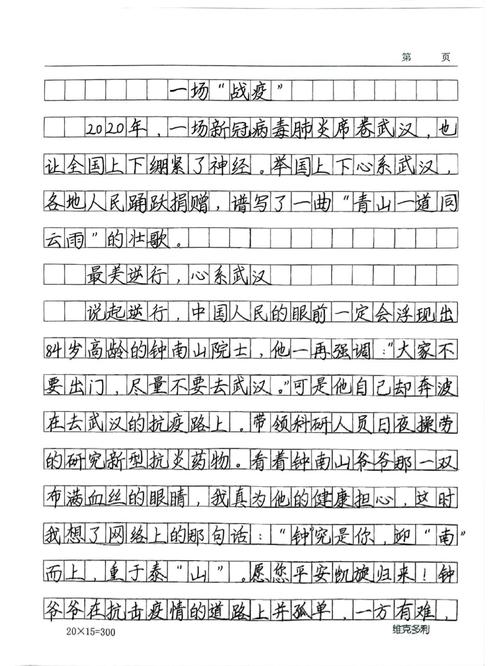 第 页
一场“战疫”
2020年，一场新冠病毒肺炎席卷武汉，也
让全国上下绷紧了神经。举国上下心系武汉，
各地人民踊跃捐赠，谱写了一曲“青山一道同
云雨”的壮歌。
最美逆行，心系武汉
说起逆行，中国人民的眼前一定会浮现出
84岁高龄的钟南山院士，他一再强调：“大家不
要出门，尽量不要去武汉。”可是他自己却奔波
在去武汉的抗疫路上。带领科研人员日夜操劳
的研究新型抗炎药物。看着钟南山爷爷那一双
布满血丝的眼睛，我真为他的健康担心，这时
我想了网络上的那句话：“钟”究是你，迎“南”
而上，重于泰“山”。愿您平安凯旋归来！钟
爷爷在抗击疫情的道路上并孤单，一方有难，
20×15=300 维克多利